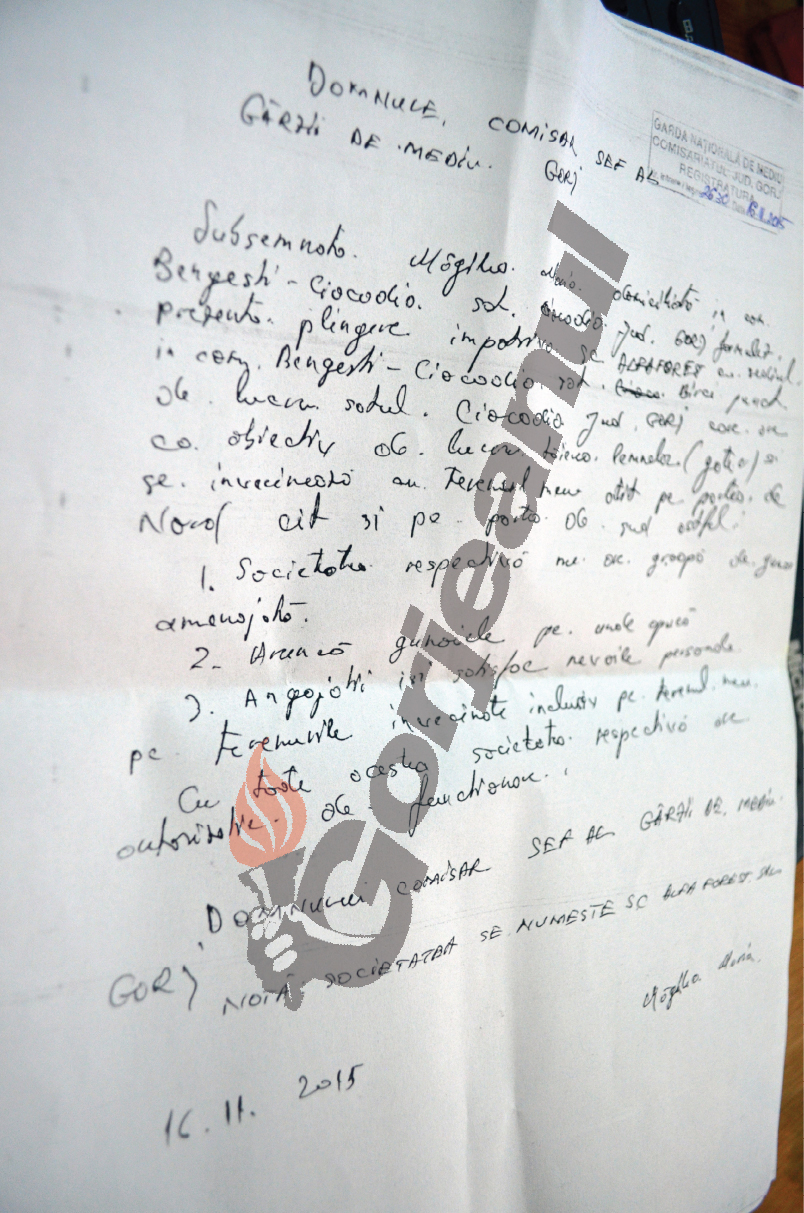 DOMNULE, COMISAR SEF AL
GĂRZII DE MEDIU. GORJ
GARDA NAȚIONALĂ DE MEDIU
COMISARIATUL JUD. GORJ
REGISTRATURA
2630 16.11.2015
Subsemnata. Mogîlka. Maria. domiciliată in com.
Bengesti - Ciocadia. sat. Ciocadia. Jud. GORJ formulez.
prezenta. plîngere impotriva SC ALFAFOREST cu sediul
in com. Bengesti - Ciocadia sat. punct
de. lucru. satul. Ciocadia Jud. GORJ care are
ca. obiectiv de. lucru taierea. lemnelor. (gater) si
se. invecinează cu. terenul meu atît pe partea. de
Nord cît si pe. partea de sud astfel:
1. Societatea. respectivă nu are groapă de gunoi
amenajată.
2. Aruncă gunoiele pe. unde apucă
3. Angajatii isi satisfac nevoile personale
pe. terenurile invecinate inclusiv pe. terenul. meu.
Cu toate acestea societatea. respectivă are
autorizatie. de functionare.
DOMNULUI COMISAR SEF AL GĂRZII DE. MEDIU.
GORJ
NOTĂ SOCIETATEA SE NUMESTE SC ALFA FOREST. SRL
Maria.
16. 11. 2015
Gorjeanul